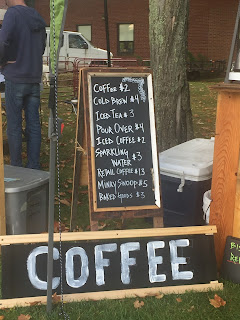 COFFEE $2
COLD BREW $4
ICED TEA $3
POUR OVER $4
ICED COFFEE $2
SPARKLING
WATER $3
RETAIL COFFEE $13
MINKY SWOOP $5
BAKED GOODS $3
COFFEE